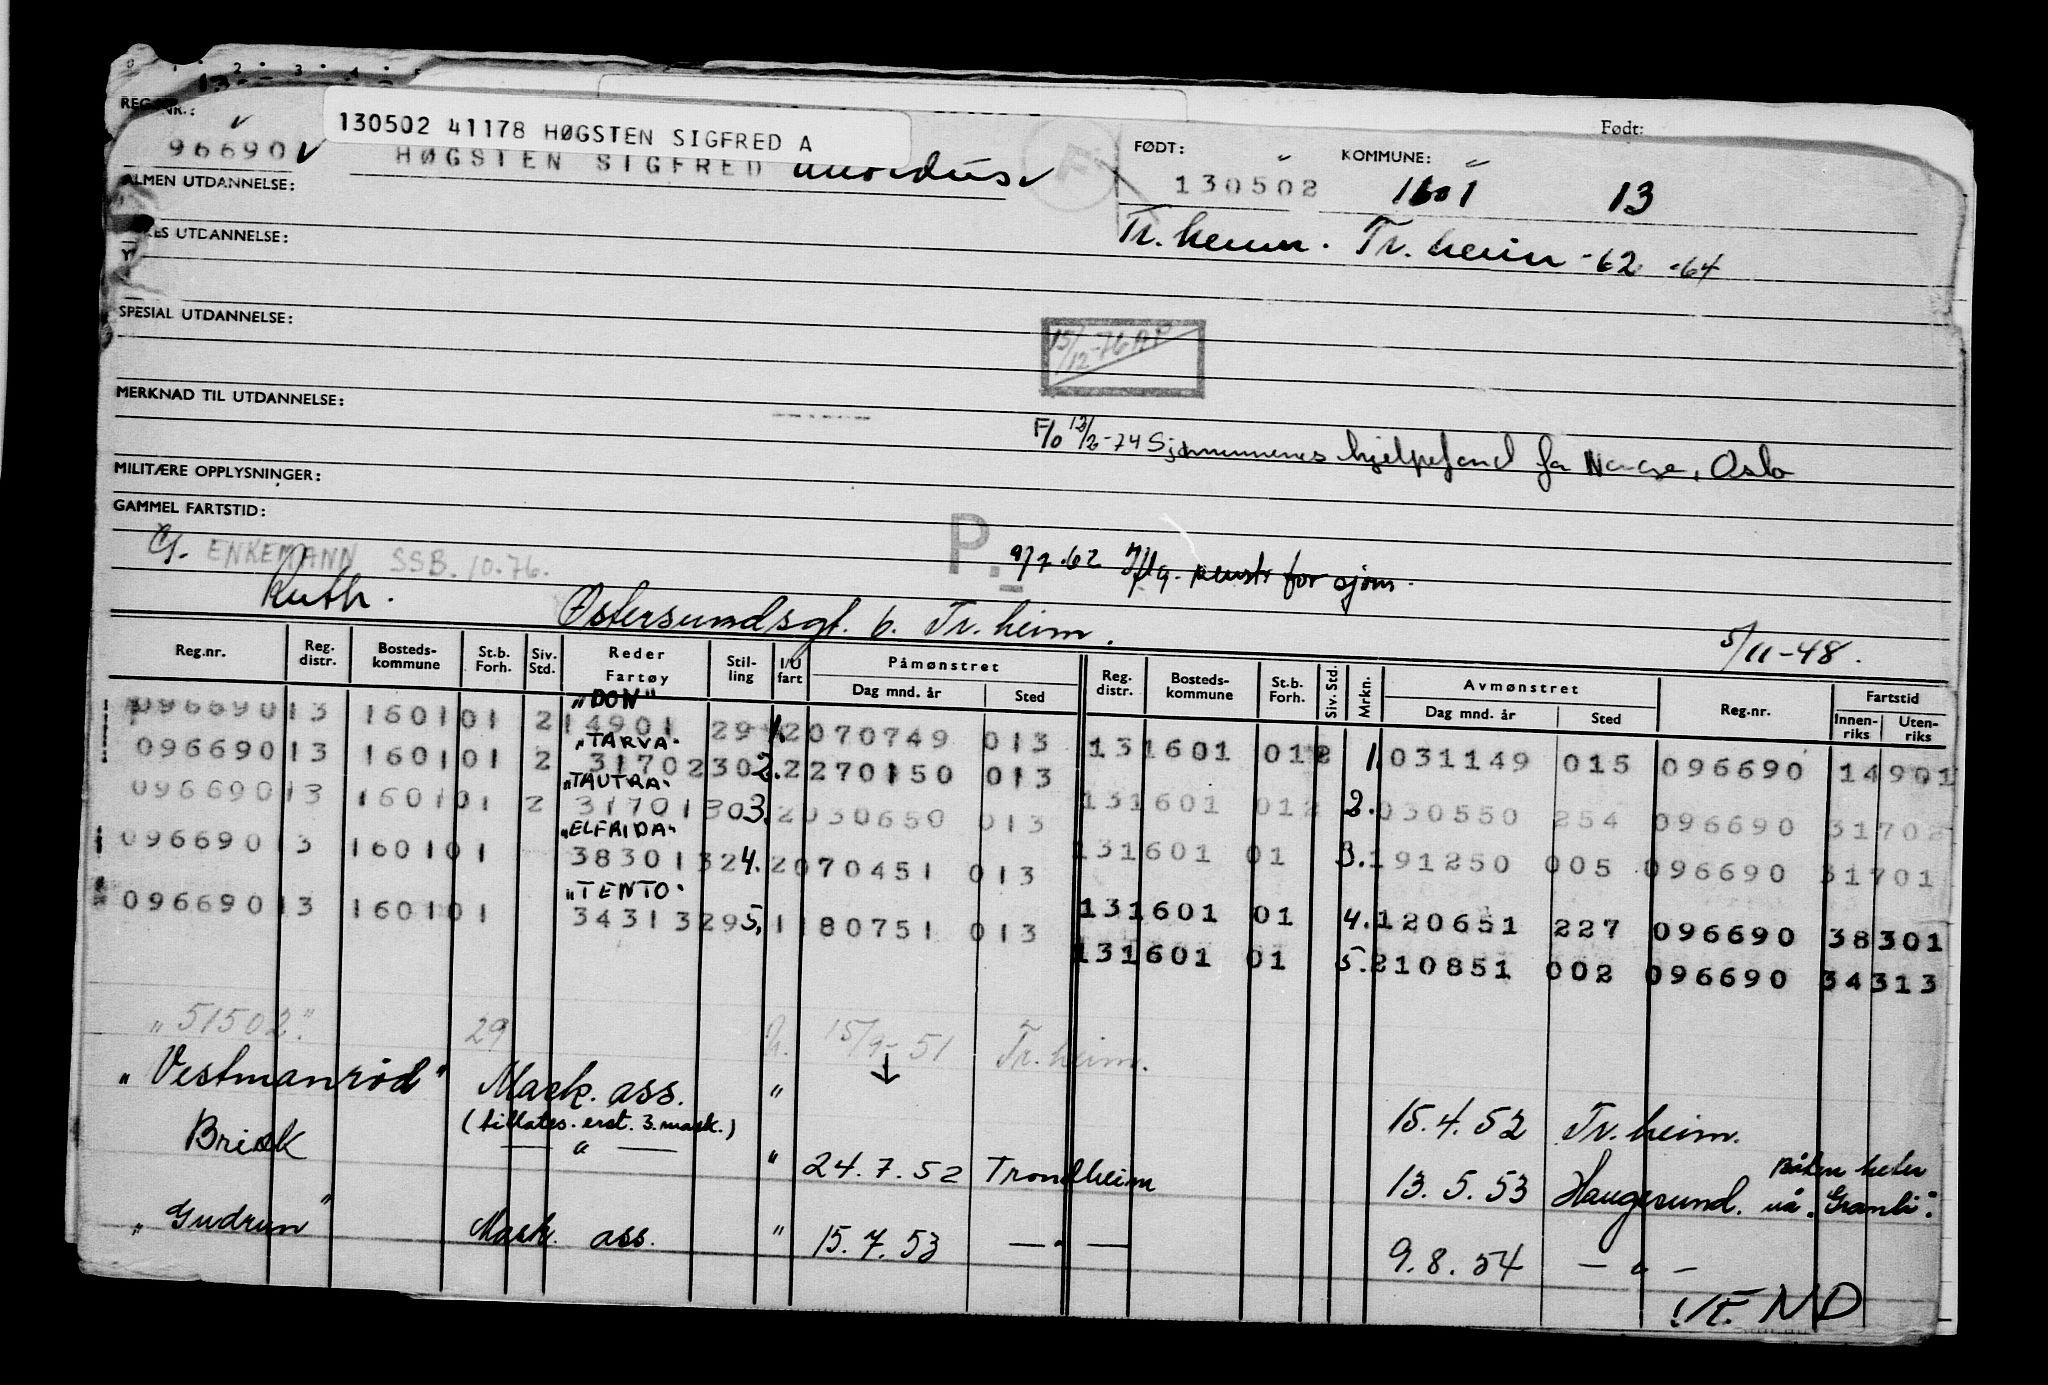 0 1 2 3 4 5
REG.NR.:
130502 41178 HØGSTEN SIGFRED A
Født:
96690
HØGSTEN SIGFRED
FØDT:
KOMMUNE:
130502
1601
13
ALMEN UTDANNELSE:
Tr.heim. Tr.heim -62 -64
UTDANNELSE:
SPESIAL UTDANNELSE:
15/12-76 AP
MERKNAD TIL UTDANNELSE:
F/o 12/2-74 Sjømennenes hjelpefond for Norge, Oslo
MILITÆRE OPPLYSNINGER:
GAMMEL FARTSTID:
G. ENKEMANN SSB. 10.76.
P.
9/7.62 Iflg. penstr for sjøm.
Ruth.
Østersundsgt. 6. Tr.heim.
5/11-48.
Reg.nr. Reg. distr. Bosteds- kommune St.b. Forh. Siv. Std. Reder Fartøy Stil- ling I/U fart Påmønstret Dag mnd. år Sted Reg. distr. Bosteds- kommune St.b. Forh. Siv. Std. Mrkn. Avmønstret Dag mnd. år Sted Reg.nr. Fartstid Innen- riks Uten- riks
„DON"
096690 13 1601 01 2 14901 29 1. 2 070749 013
131601 012 1. 031149 015 096690 14901
„TARVA"
096690 13 1601 01 2 31702 302. 2 270150 013
131601 012 2. 030550 254 096690 31702
„TAUTRA"
096690 13 1601 01 2 31701 303. 2 030650 013
131601 01 3. 191250 005 096690 31701
„ELFRIDA"
096690 13 1601 01 38301 324. 2 070451 013
131601 01 4. 120651 227 096690 38301
„TENTO"
096690 13 1601 01 34313 295. 1 180751 013
131601 01 5. 210851 002 096690 34313
„51502" 29 15/9-51 Tr.heim.
„Vestmanrød" Mask. ass. " ↓ 15.4.52 Tr.heim.
(tillates. erst. 3. mask.)
Brisk — " — " 24.7.52 Trondheim 13.5.53 Haugesund. Båten heter nå „Granli".
„Gudrun" Mask. ass. " 15.7.53 — " — 9.8.54 — " —
VEND